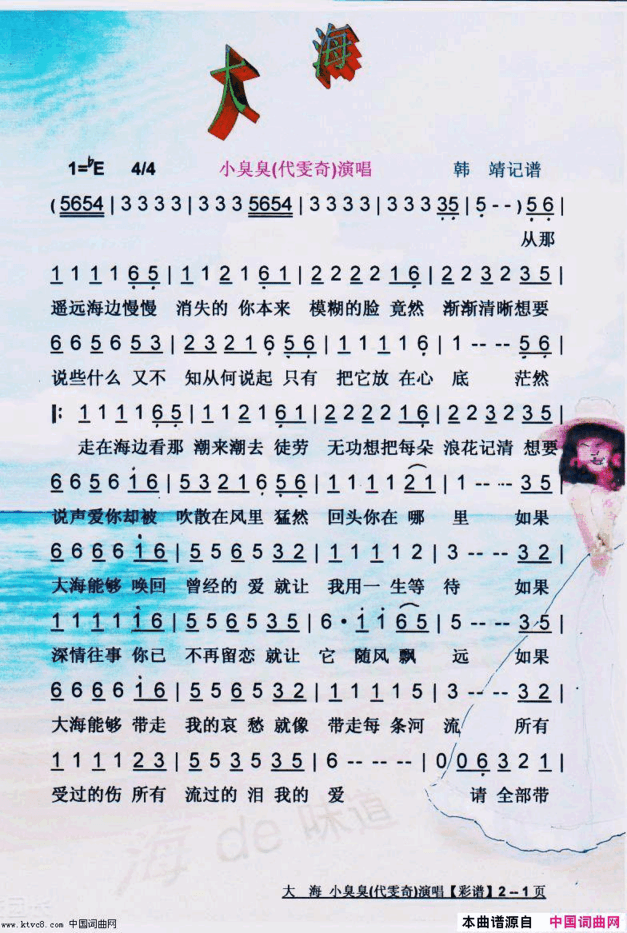 大 海
1=♭E 4/4 小臭臭(代雯奇)演唱 韩 靖记谱
( 5654 | 3 3 3 3 | 3 3 3 5654 | 3 3 3 3 | 3 3 3 35 | 5 - - ) 5 6 |
从那
1 1 1 1 6 5 | 1 1 2 1 6 1 | 2 2 2 2 1 6 | 2 2 3 2 3 5 |
遥远海边慢慢 消失的 你本来 模糊的脸 竟然 渐渐清晰想要
6 6 5 6 5 3 | 2 3 2 1 6 5 6 | 1 1 1 1 2 1 6 | 1 - - - 5 6 |
说些什么 又不 知从何说起 只有 把它放 在心 底 茫然
|: 1 1 1 1 6 5 | 1 1 2 1 6 1 | 2 2 2 2 1 6 | 2 2 3 2 3 5 |
走在海边看那 潮来潮去 徒劳 无功想把每朵 浪花记清 想要
6 6 5 6 1 6 | 5 3 2 1 6 5 6 | 1 1 1 1 2 1 | 1 - - - 3 5 |
说声爱你却被 吹散在风里 猛然 回头你在 哪 里 如果
6 6 6 6 1 6 | 5 5 6 5 3 2 | 1 1 1 1 1 2 | 3 - - - 3 2 |
大海能够 唤回 曾经的 爱 就让 我用一 生等 待 如果
1 1 1 1 1 6 | 5 5 6 5 3 5 | 6 • 1 1 6 5 | 5 - - - 3 5 |
深情往事 你已 不再留恋 就让 它 随风 飘 远 如果
6 6 6 6 1 6 | 5 5 6 5 3 2 | 1 1 1 1 1 5 | 3 - - - 3 2 |
大海能够 带走 我的哀 愁 就像 带走每 条河 流 所有
1 1 1 1 2 3 | 5 5 3 5 3 5 | 6 - - - | 0 0 6 3 2 1 |
受过的伤 所有 流过的 泪 我的 爱 请 全部带
海 de 味道
大 海 小臭臭(代雯奇)演唱【彩谱】2 -- 1 页
www.ktvc8.com 中国词曲网 本曲谱源自 中国词曲网